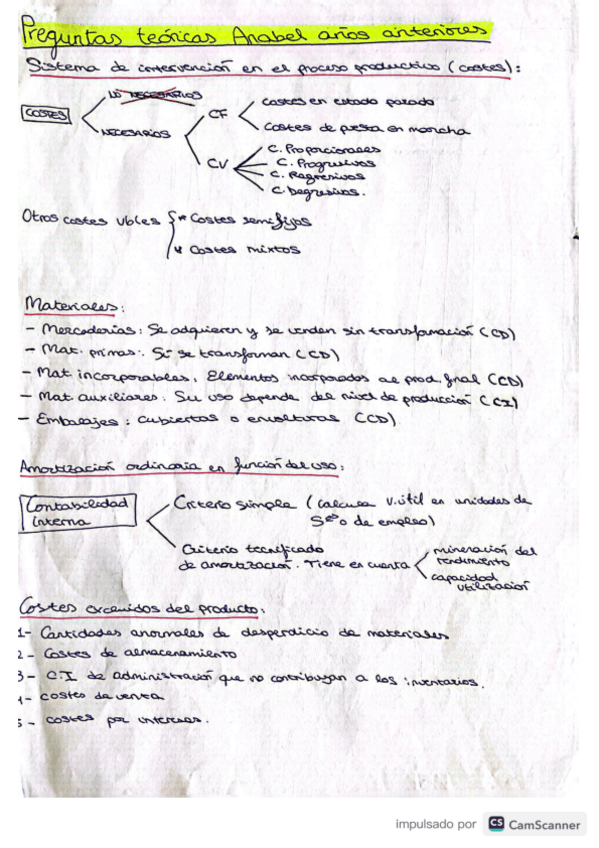 Preguntas teóricas Anabel años anteriores
Sistema de intervención en el proceso productivo (costes):
COSTES
NO NECESARIOS
NECESARIOS
CF
Costes en estado parado
Costes de puesta en marcha
CV
C. Proporcionales
C. Progresivos
C. Regresivos
C. Degresivos.
Otros costes vbles
* Costes semifijos
* Costes mixtos
Materiales:
- Mercaderías: Se adquieren y se venden sin transformación (CD)
- Mat. primas: Si se transforman (CD)
- Mat incorporables. Elementos incorporados al prod. final (CD)
- Mat auxiliares: Su uso depende del nivel de producción (CI)
- Embalajes: cubiertas o envolturas (CD).
Amortización ordinaria en función del uso:
Contabilidad interna
Criterio simple (calcula v.útil en unidades de
Sºº o de empleo)
Criterio tecnificado
de amortización. Tiene en cuenta
mineración del
rendimiento
capacidad
utilización
Costes excluidos del producto:
1- Cantidades anormales de desperdicio de materiales
2- Costes de almacenamiento
3- C.I de administración que no contribuyan a los inventarios.
4- costes de venta
5- costes por intereses.
impulsado por CS CamScanner